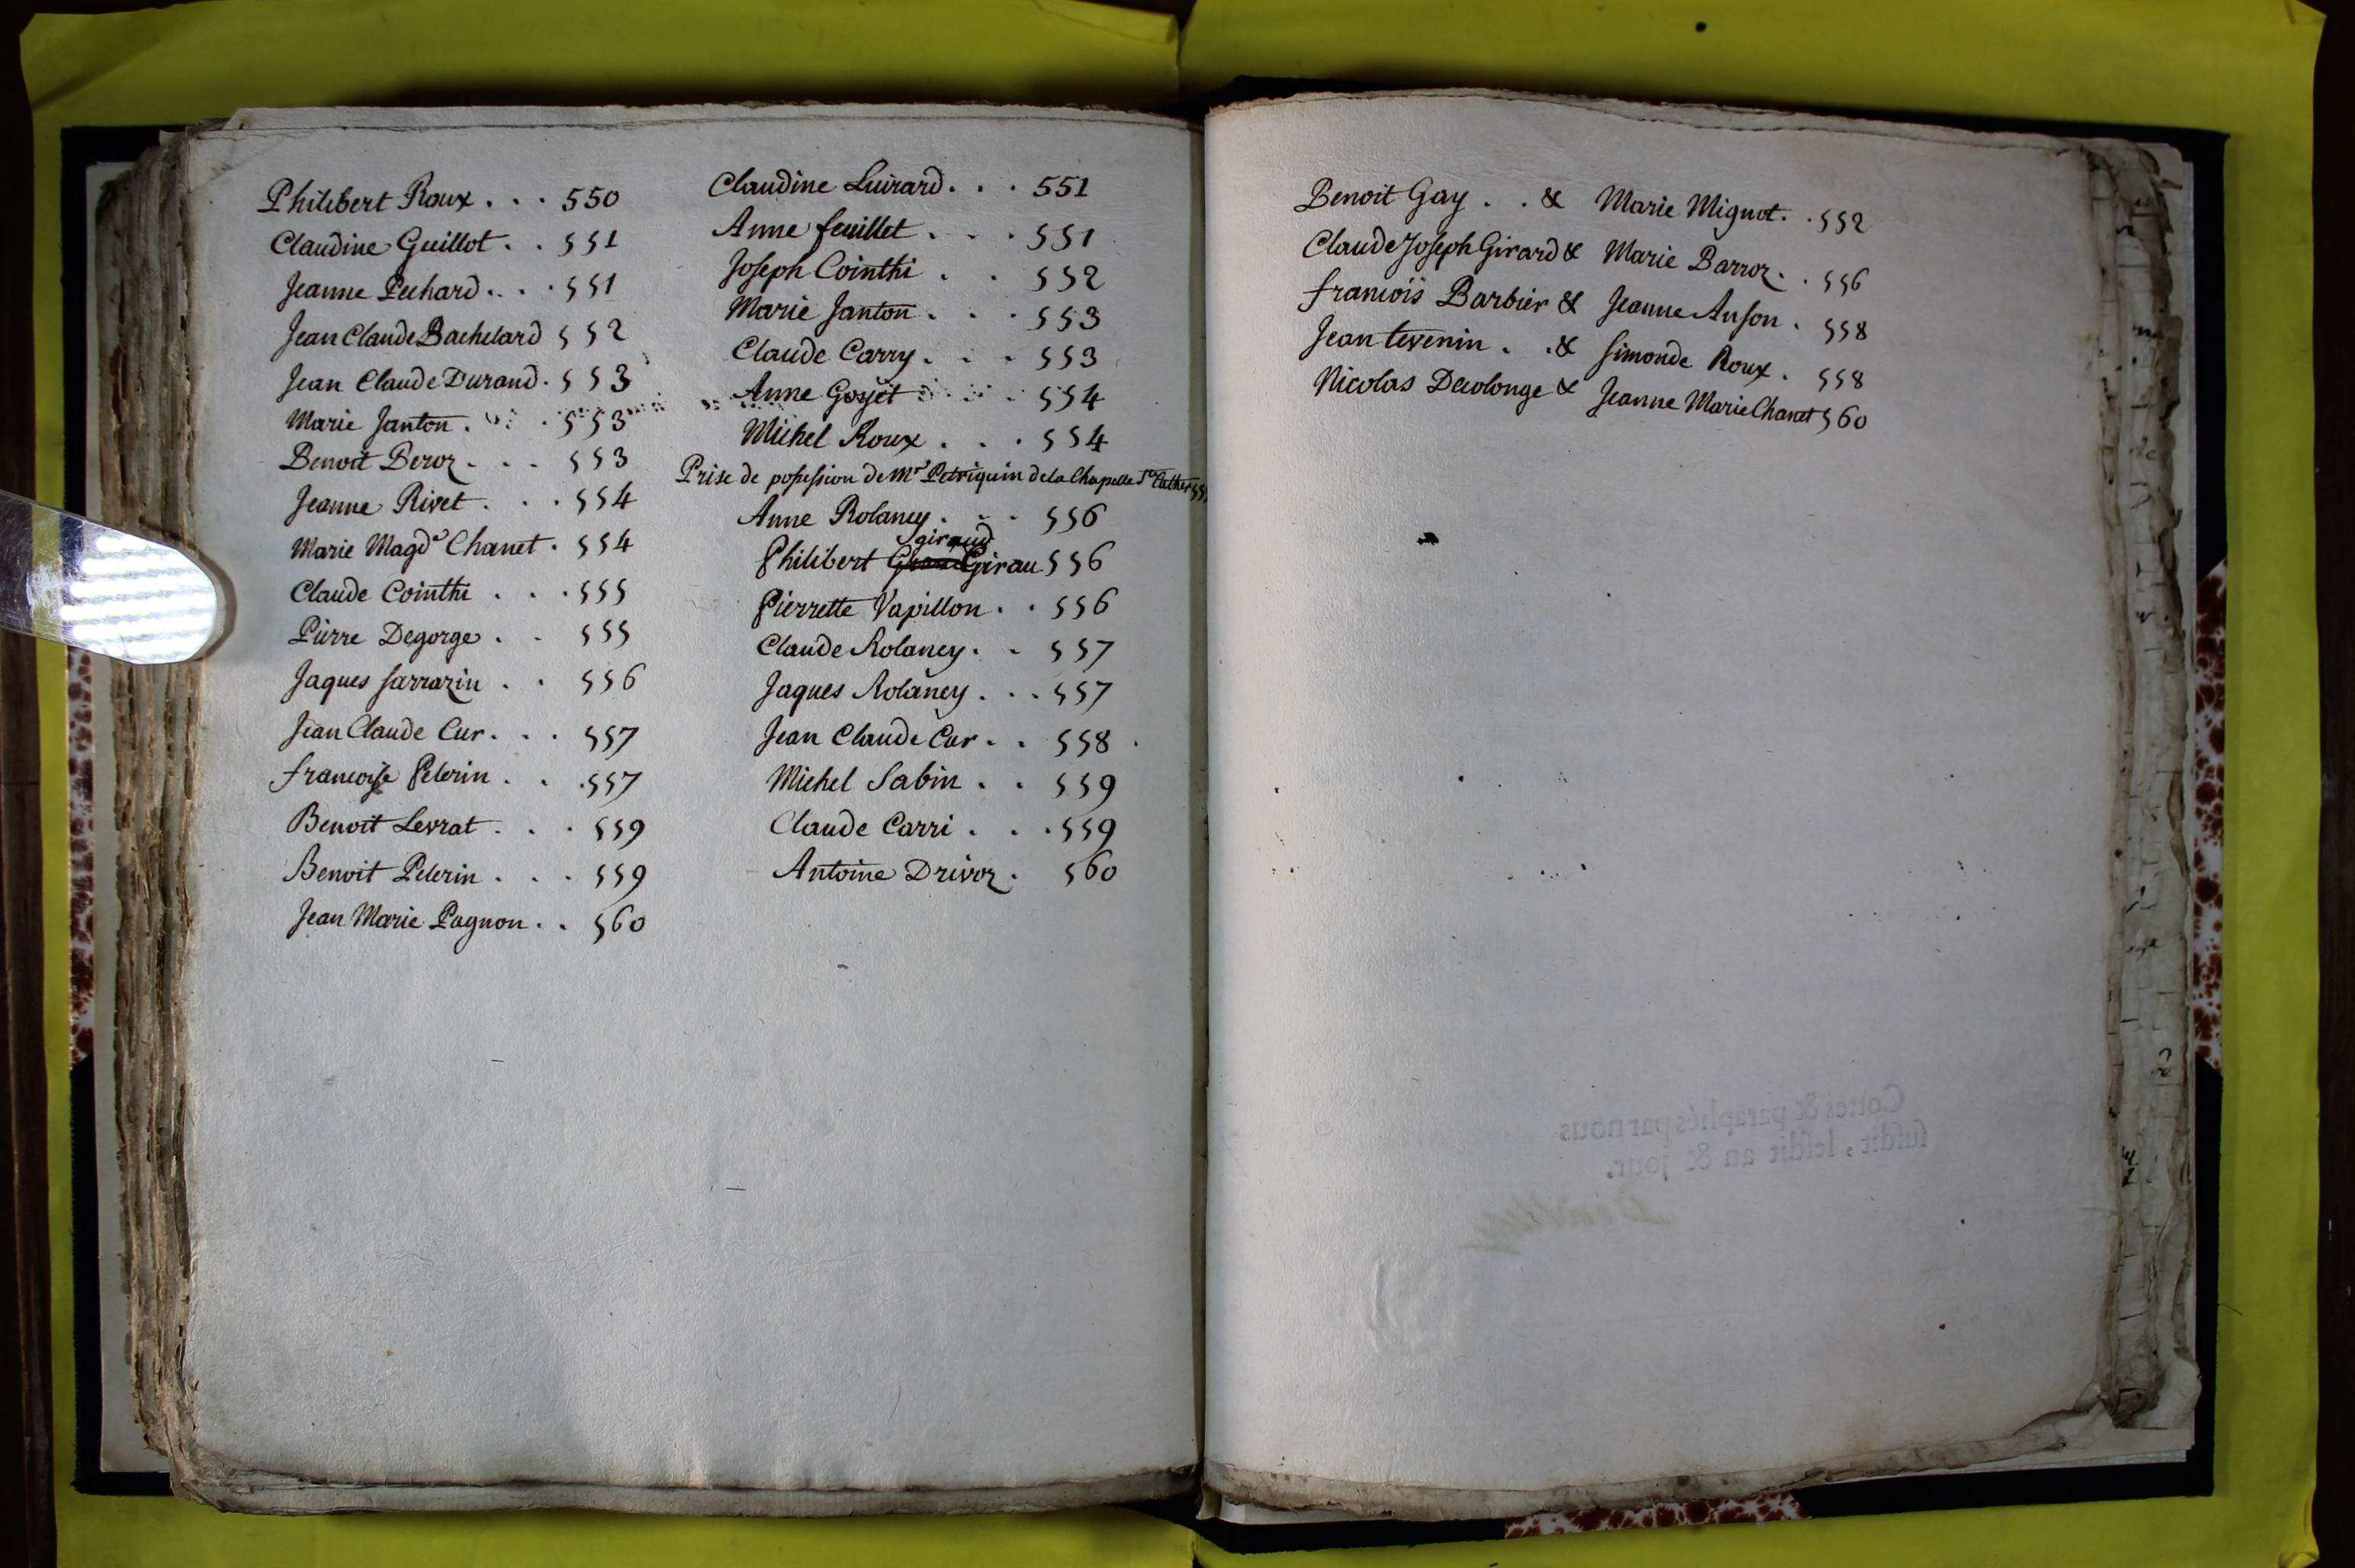 Philibert Roux . . . 550
Claudine Guillot . . 551
Jeanne Pechard . . . 551
Jean Claude Bachelard 552
Jean Claude Durand . 553
Marie Janton . . . 553
Benoit Beroz . . . 553
Jeanne Rivet . . . 554
Marie Magde Chanet . 554
Claude Cointhi . . . 555
Pierre Degorge . . 555
Jaques Sarrazin . . 556
Jean Claude Cur . . . 557
françoise Pelerin . . . 557
Benoit Levrat . . . 559
Benoit Pelerin . . . 559
Jean Marie Pagnon . . 560
Claudine Luirard . . . 551
Anne feuillet . . . 551
Joseph Cointhi . . 552
Marie Janton . . . 553
Claude Carry . . . 553
Anne Goyet . . . 554
Michel Roux . . . 554
Prise de possession de Mr Petriquin de la Chapelle Ste Cather
Anne Rolancy . . . 556
giraud
Philibert Girau 556
Pierrette Vapillon . . 556
Claude Rolancy . . 557
Jaques Rolancy . . . 557
Jean Claude Cur . . 558
Michel Sabin . . 559
Claude Carri . . . 559
Antoine Drivoz . 560
Benoit Gay . . & Marie Mignot . . 552
Claude Joseph Girard & Marie Barroz . . 556
francois Barbier & Jeanne Anson . 558
Jean tevenin . . & Simonde Roux . 558
Nicolas Decolonge & Jeanne Marie Chanet 560
Cottes & paraphés par nous
susdit, lesdit an & jour.